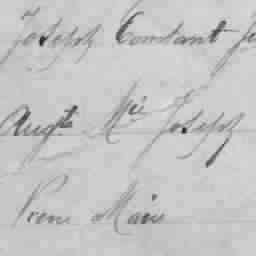 Joseph Constant
Augte Mie Joseph
Marie